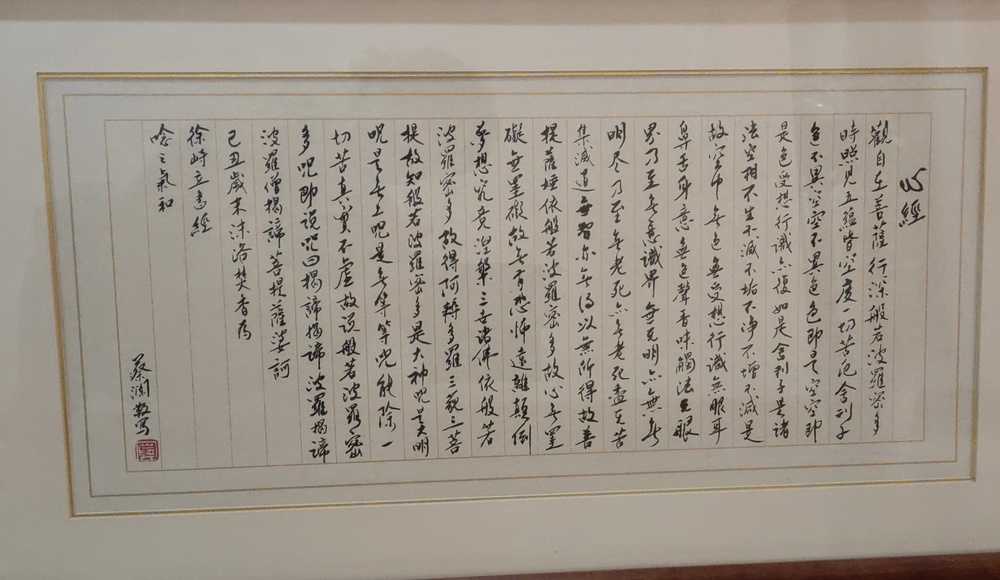 心經
觀自在菩薩行深般若波羅密多
時照見五蘊皆空度一切苦厄舍利子
色不異空空不異色色即是空空即
是色受想行識亦復如是舍利子是諸
法空相不生不滅不垢不淨不增不減是
故空中無色無受想行識無眼耳
鼻舌身意無色聲香味觸法無眼
界乃至無意識界無無明亦無無
明尽乃至無老死亦無老死盡無苦
集滅道無智亦無得以無所得故菩
提薩埵依般若波羅密多故心無罣
礙無罣礙故無有恐怖遠離顛倒
夢想究竟涅槃三世諸佛依般若
波羅密多故得阿耨多羅三藐三菩
提故知般若波羅密多是大神呪是大明
呪是無上呪是無等等呪能除一
切苦真實不虛故說般若波羅密
多呪即說呪曰揭諦揭諦波羅揭諦
波羅僧揭諦菩提薩婆訶
己丑歲末沐浴焚香為
徐峙立書經
唸之氣和
蔡瀾敬寫